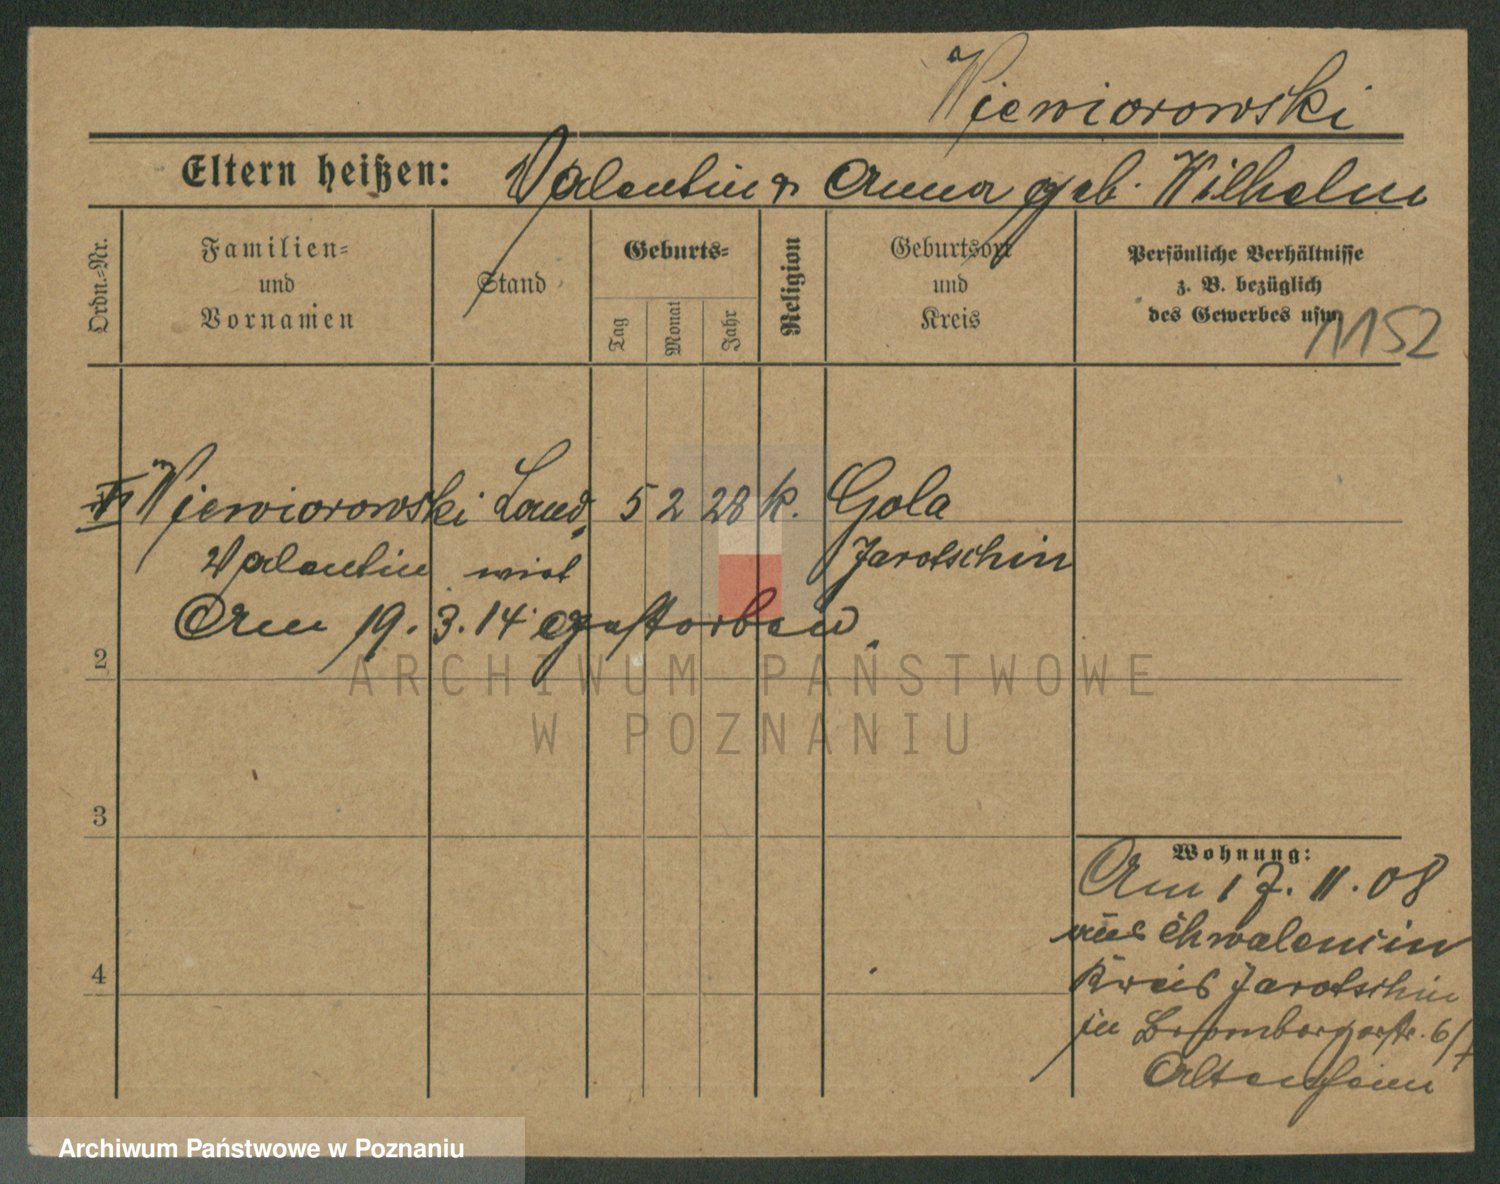 Wiewiorowski
Eltern heißen: Valentin & Anna geb. Wilhelm
Ordn.-Nr.
Familien-
und
Vornamen
Stand
Geburts-
Tag
Monat
Jahr
Religion
Geburtsort
und
Kreis
Persönliche Verhältnisse
z. B. bezüglich
des Gewerbes usw.
1152
Wiewiorowski Land- 5 2 28 k. Gola
Valentin wirt Jarotschin
Am 19.3.14 gestorben.
2
3
4
Wohnung:
Am 17.11.08
aus Chwalencin
Kreis Jarotschin
in Brombergerstr. 6/7
Altenheim
ARCHIWUM PAŃSTWOWE
W POZNANIU
Archiwum Państwowe w Poznaniu